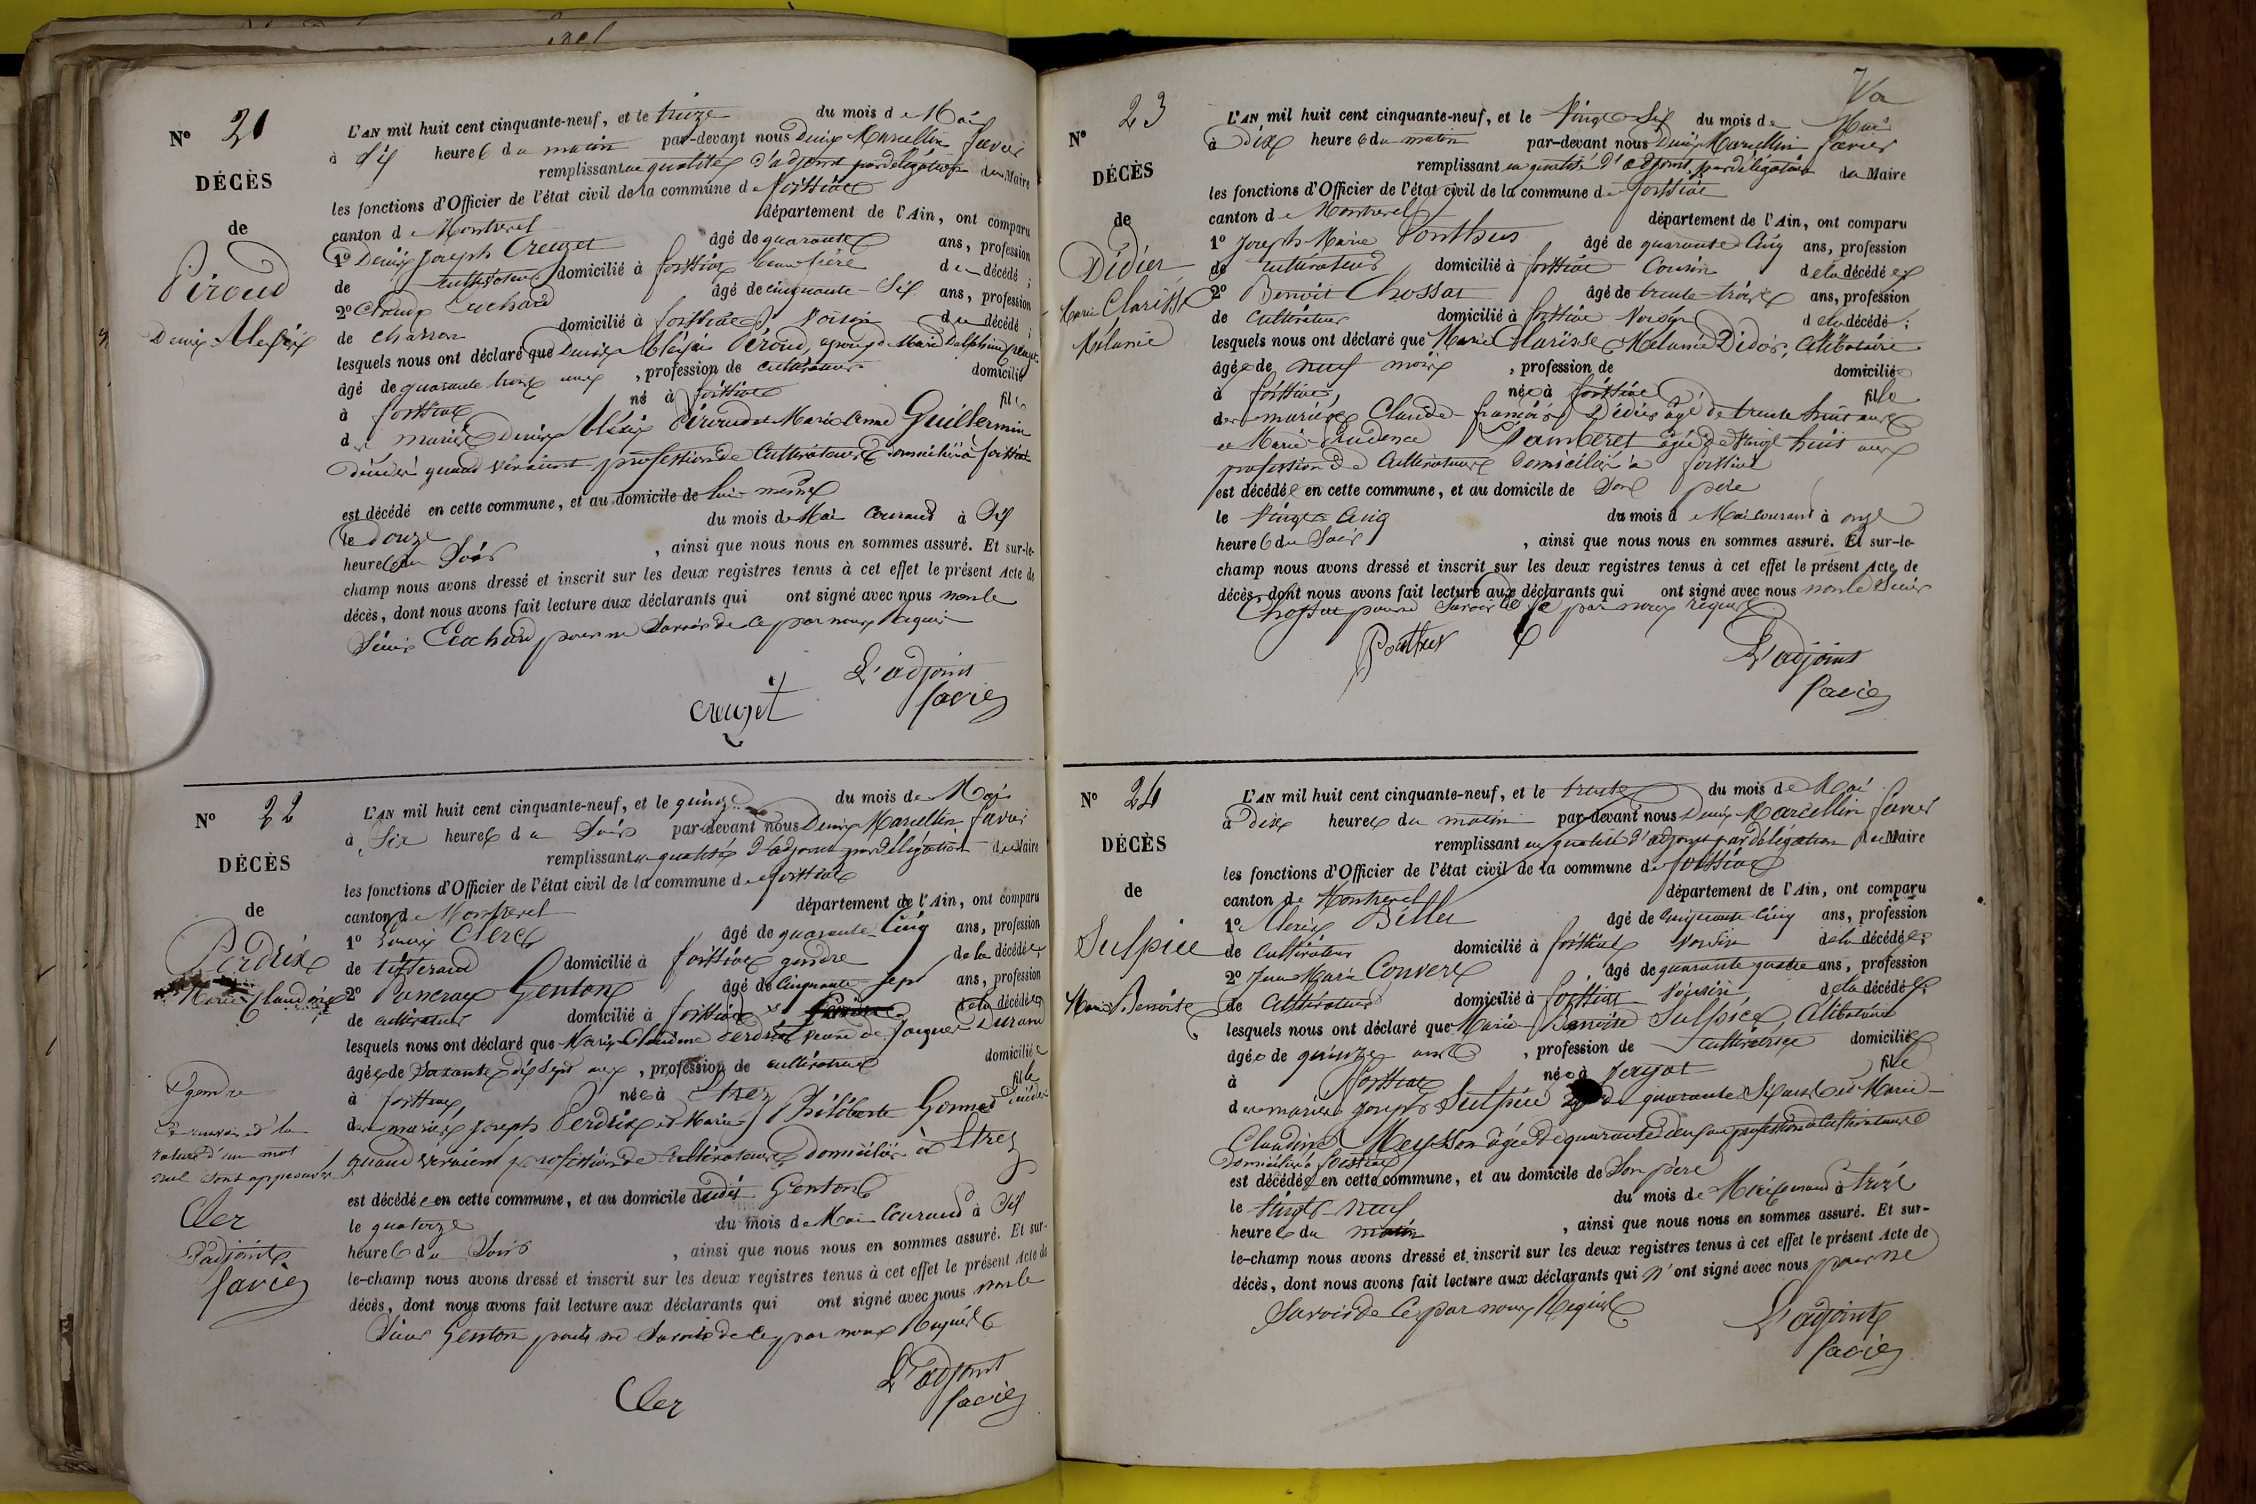 N° 21
DÉCÈS
de
Péroud
Denis Alexis
L'AN mil huit cent cinquante-neuf, et le treize du mois de Mai
à Six heures du matin par-devant nous Denis Marcellin Favier
remplissant en qualité d'adjoint par délégation du Maire
les fonctions d'Officier de l'état civil de la commune de foissiat
canton de Montrevel département de l'Ain, ont comparu
1° Denis Joseph Creuzet âgé de quarante ans, profession
de cultivateur domicilié à foissiat beau frère du décédé ;
2° Claude Cuchard âgé de cinquante-Six ans, profession
de charron domicilié à foissiat voisin du décédé ;
lesquels nous ont déclaré que Denis Alexis Péroud, époux de Marie Delphine Creuzet
âgé de quarante trois ans, profession de cultivateur domicilié
à foissiat né à foissiat fils
des mariés Denis Alexis Péroud et Marie Anne Guillermin
décédés quand vivaient profession de Cultivateurs domiciliés à foissiat
est décédé en cette commune, et au domicile de lui même
le douze du mois de Mai Courant à Six
heures du Soir, ainsi que nous nous en sommes assuré. Et sur-le-
champ nous avons dressé et inscrit sur les deux registres tenus à cet effet le présent Acte de
décès, dont nous avons fait lecture aux déclarants qui ont signé avec nous non le
Sieur Cuchard pour ne Savoir de ce par nous requis
L'adjoint
Creuzet Favier
N° 22
DÉCÈS
de
Perdrix
Marie Claudine
L'AN mil huit cent cinquante-neuf, et le quinze du mois de Mai
à Six heures du Soir par-devant nous Denis Marcellin Favier
remplissant en qualité d'adjoint par délégation du Maire
les fonctions d'Officier de l'état civil de la commune de foissiat
canton de Montrevel département de l'Ain, ont comparu
1° Louis Clerc âgé de quarante-Cinq ans, profession
de tisserand domicilié à foissiat gendre de la décédée ;
2° Pancrace Genton âgé de Cinquante-sept ans, profession
de cultivateur domicilié à foissiat de la décédée ;
lesquels nous ont déclaré que Marie Claudine Perdrix veuve de Jacques Durand
âgée de Soixante dix Sept ans, profession de cultivatrice domiciliée
à foissiat, née à Etrez fille
des mariés Joseph Perdrix et Marie Philiberte Gonnod décédés
quand vivaient profession de Cultivateurs domiciliés à Etrez
est décédée en cette commune, et au domicile dudit Genton
le quatorze du mois de Mai Courant à Six
heures du Soir, ainsi que nous nous en sommes assuré. Et sur-
le-champ nous avons dressé et inscrit sur les deux registres tenus à cet effet le présent Acte de
décès, dont nous avons fait lecture aux déclarants qui ont signé avec nous non le
Sieur Genton pour ne Savoir de ce par nous Requis
L'adjoint
Clerc Favier
gendre
Ce renvoi et la
rature d'un mot
nul sont approuvés
Clerc
L'adjoint
Favier
N° 23
DÉCÈS
de
Didier
Marie Clarisse
Mélanie
L'AN mil huit cent cinquante-neuf, et le Vingt Six du mois de Mai
à dix heures du matin par-devant nous Denis Marcellin Favier
remplissant en qualité d'adjoint par délégation du Maire
les fonctions d'Officier de l'état civil de la commune de foissiat
canton de Montrevel département de l'Ain, ont comparu
1° Joseph Marie Ponthus âgé de quarante Cinq ans, profession
de cultivateur domicilié à foissiat Cousin de la décédée
2° Benoit Chossat âgé de trente-trois ans, profession
de cultivateur domicilié à foissiat Voisin de la décédé ;
lesquels nous ont déclaré que Marie Clarisse Mélanie Didier, Célibataire
âgée de neuf mois, profession de domiciliée
à foissiat née à foissiat fille
des mariés Claude-françois Didier âgé de trente huit ans
et Marie-Prudence âgée de Vingt huit ans
profession de Cultivateurs domiciliés à foissiat
est décédée en cette commune, et au domicile de Son père
le Vingt-Cinq du mois de Mai Courant à onze
heures du Soir, ainsi que nous nous en sommes assuré. Et sur-le-
champ nous avons dressé et inscrit sur les deux registres tenus à cet effet le présent Acte de
décès, dont nous avons fait lecture aux déclarants qui ont signé avec nous non le Sieur
Chossat pour ne Savoir de ce par nous requis
Ponthus L'adjoint
Favier
N° 24
DÉCÈS
de
Sulpice
Marie Benoite
L'AN mil huit cent cinquante-neuf, et le trente du mois de Mai
à dix heures du matin par-devant nous Denis Marcellin Favier
remplissant en qualité d'adjoint par délégation du Maire
les fonctions d'Officier de l'état civil de la commune de foissiat
canton de Montrevel département de l'Ain, ont comparu
1° Alexis âgé de Cinquante Cinq ans, profession
de cultivateur domicilié à foissiat Voisin de la décédée ;
2° Jean Marie Convert âgé de quarante quatre ans, profession
de Cultivateur domicilié à foissiat Voisin de la décédée ;
lesquels nous ont déclaré que Marie-Benoite Sulpice, Célibataire
âgée de quinze ans, profession de Cultivatrice domiciliée
à foissiat née à Jayat fille
des mariés Joseph Sulpice âgé de quarante Six ans et Marie-
Claudine âgée de quarante deux ans profession de Cultivateurs
domiciliés à foissiat
est décédée en cette commune, et au domicile de Son père
le Vingt-neuf du mois de Mai Courant à trois
heures du matin, ainsi que nous nous en sommes assuré. Et sur-
le-champ nous avons dressé et inscrit sur les deux registres tenus à cet effet le présent Acte de
décès, dont nous avons fait lecture aux déclarants qui n'ont signé avec nous pour ne
Savoir de Ce par nous Requis
L'adjoint
Favier